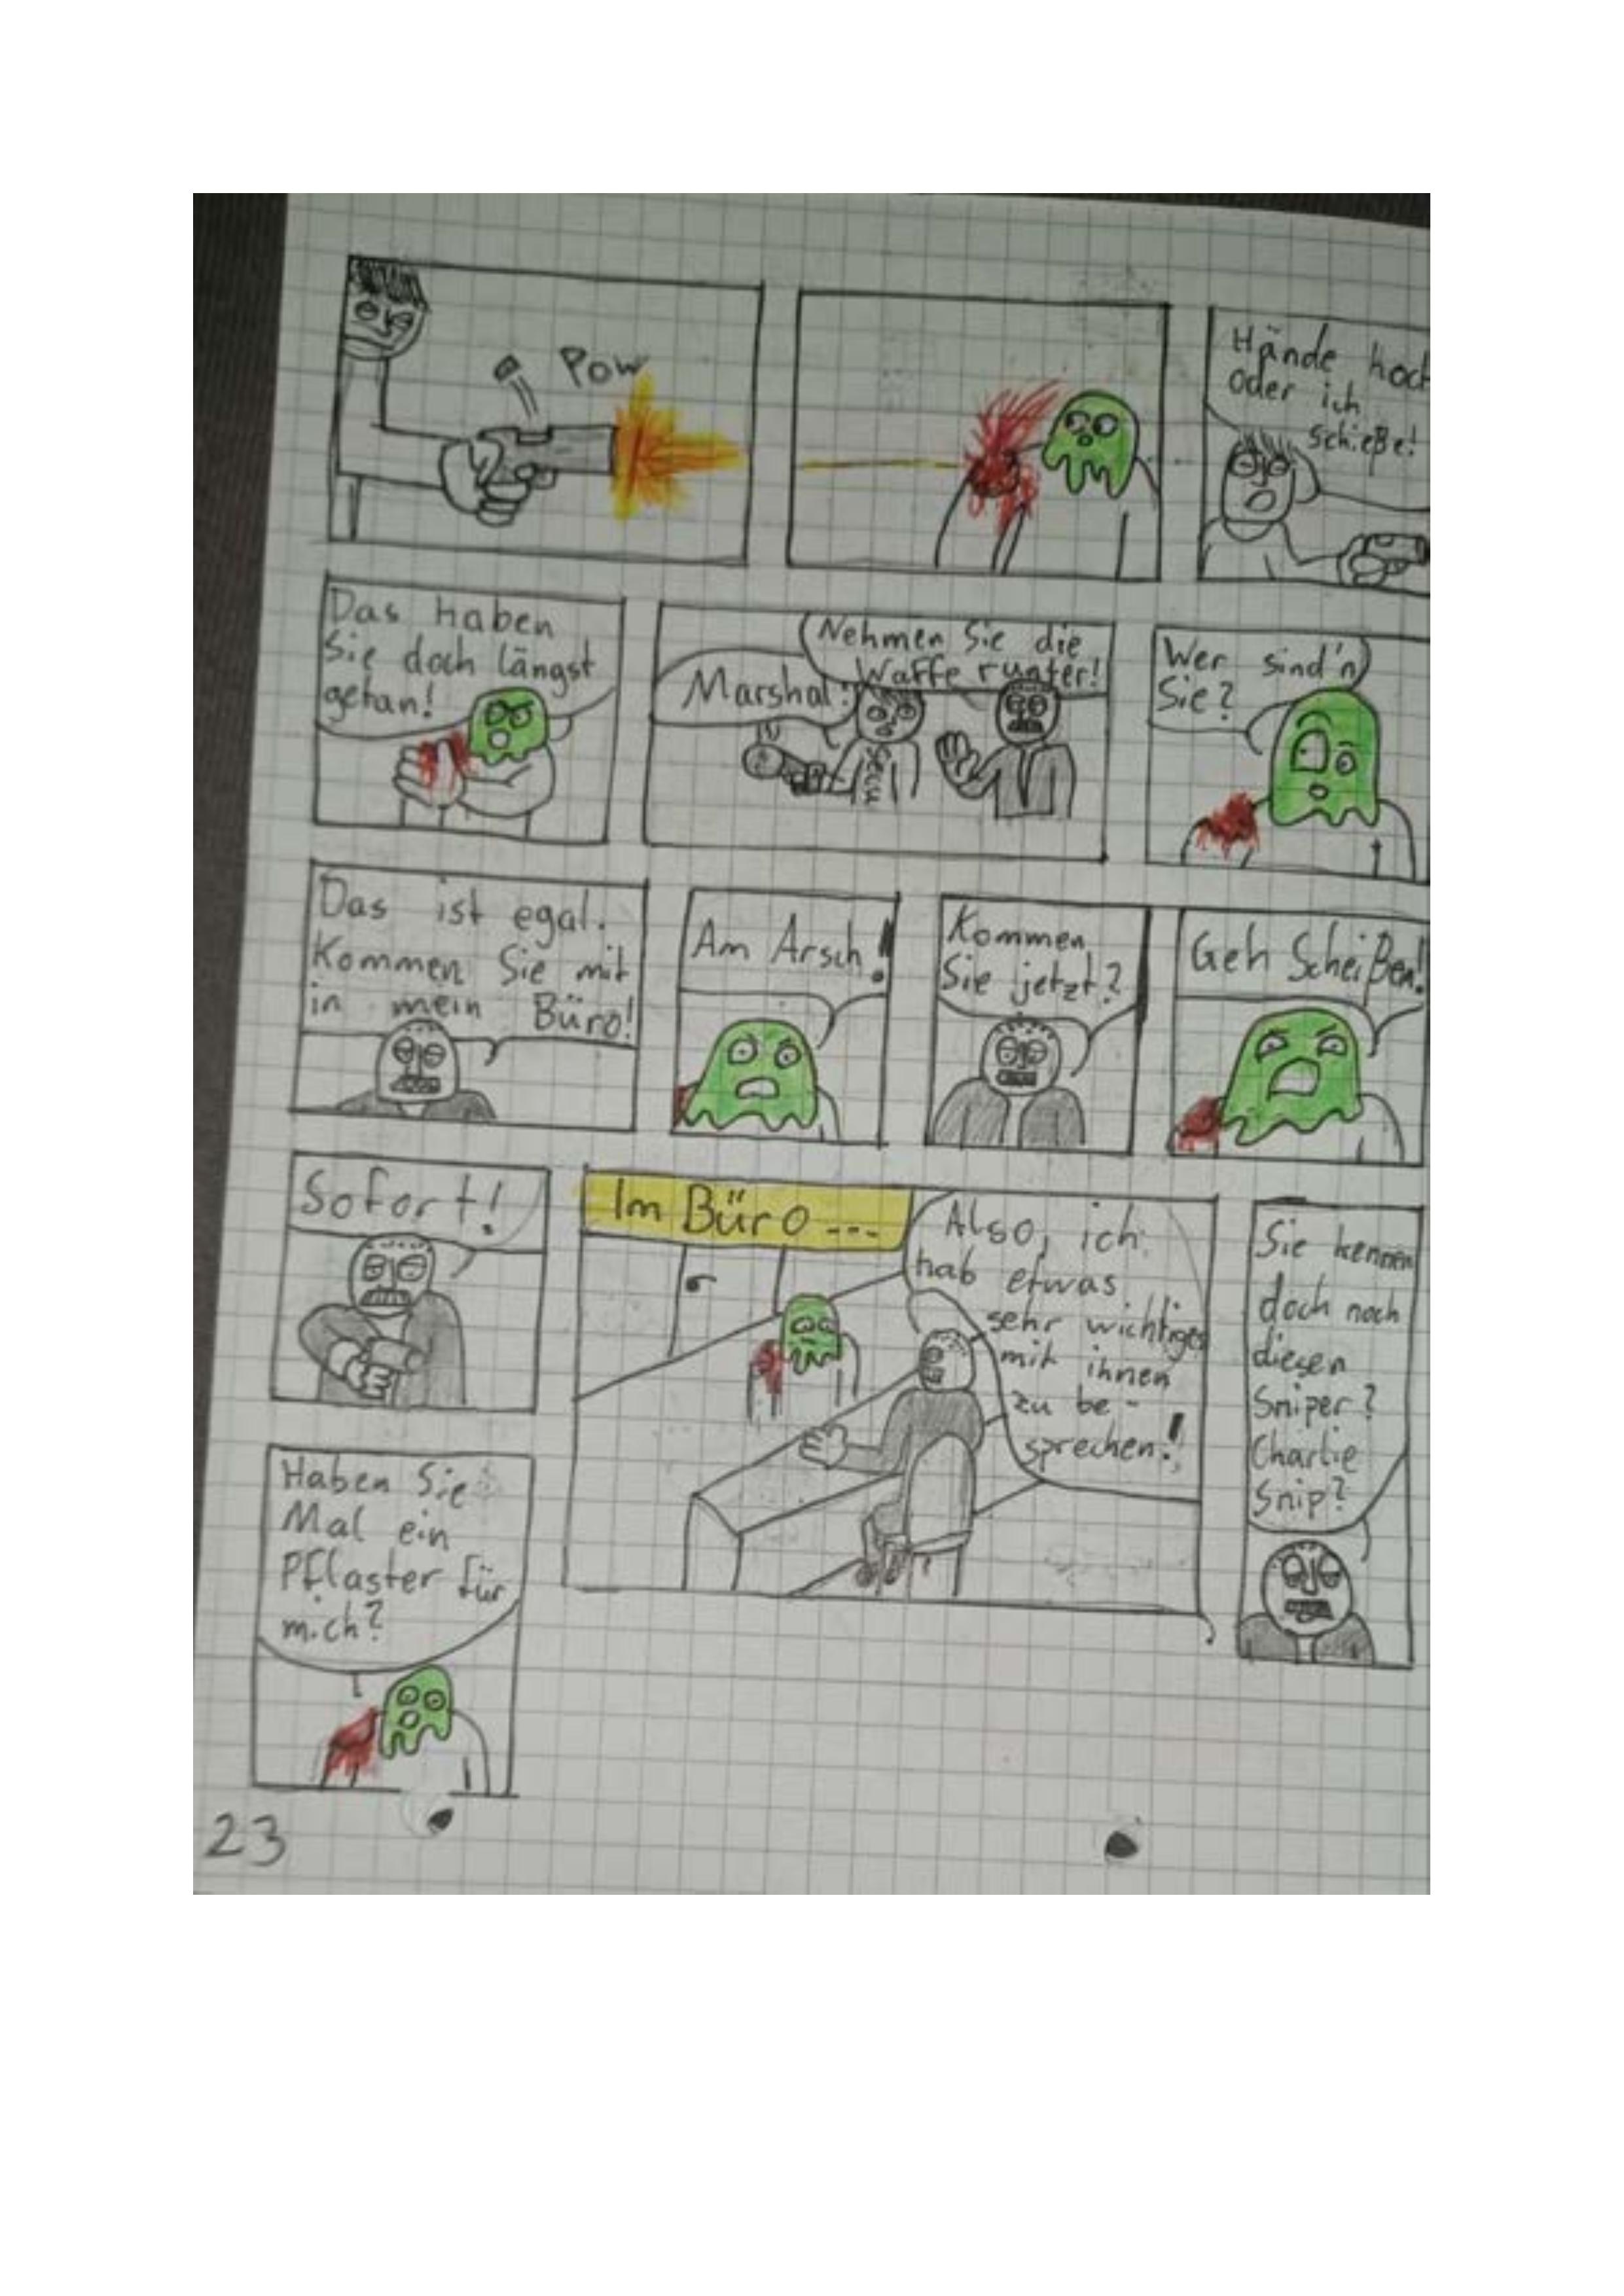 Pow
Hände hoch
oder ich
schieße!
Das haben
Sie doch längst
getan!
Nehmen Sie die
Waffe runter!
Marshal?
Secu
Wer sind'n
Sie?
Das ist egal.
Kommen Sie mit
in mein Büro!
Am Arsch!
Kommen
Sie jetzt?
Geh Scheißen!
Sofort!
Im Büro...
Also, ich
hab etwas
sehr wichtiges
mit ihnen
zu be-
sprechen!
Sie kennen
doch noch
diesen
Sniper?
Charlie
Snip?
Haben Sie
Mal ein
Pflaster für
mich?
23